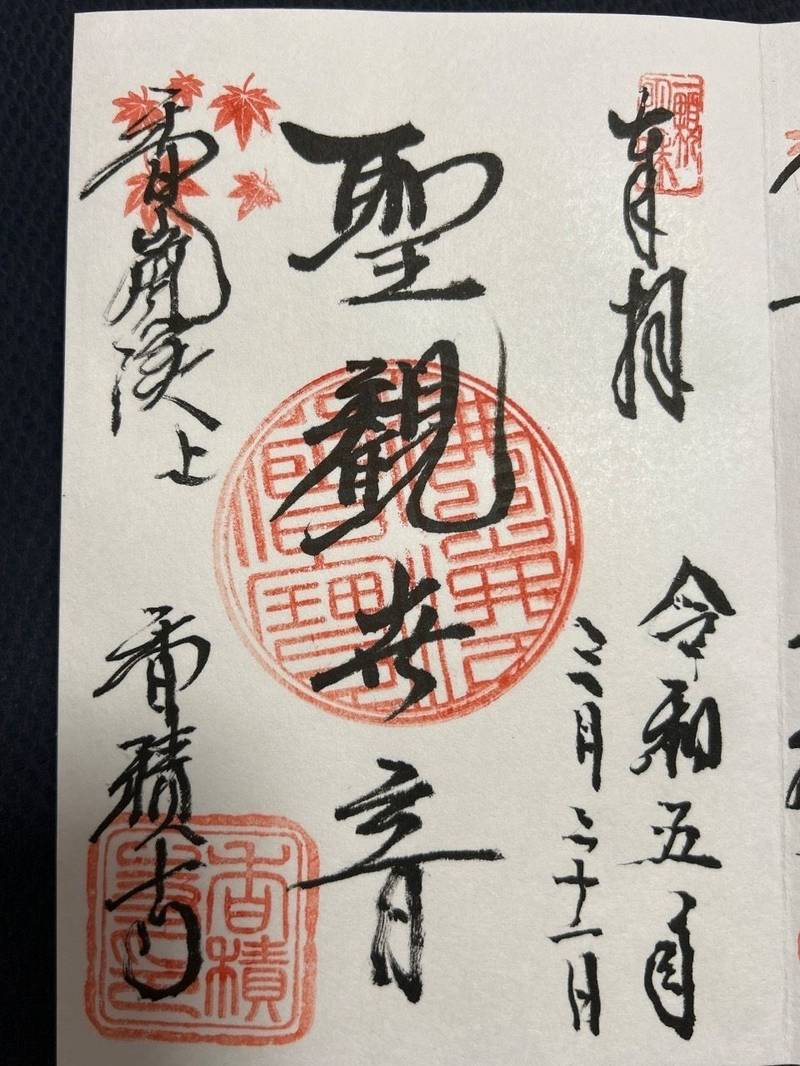 奉拝
令和五年
三月二十一日
聖観世音
香嵐渓上
香積寺
香積